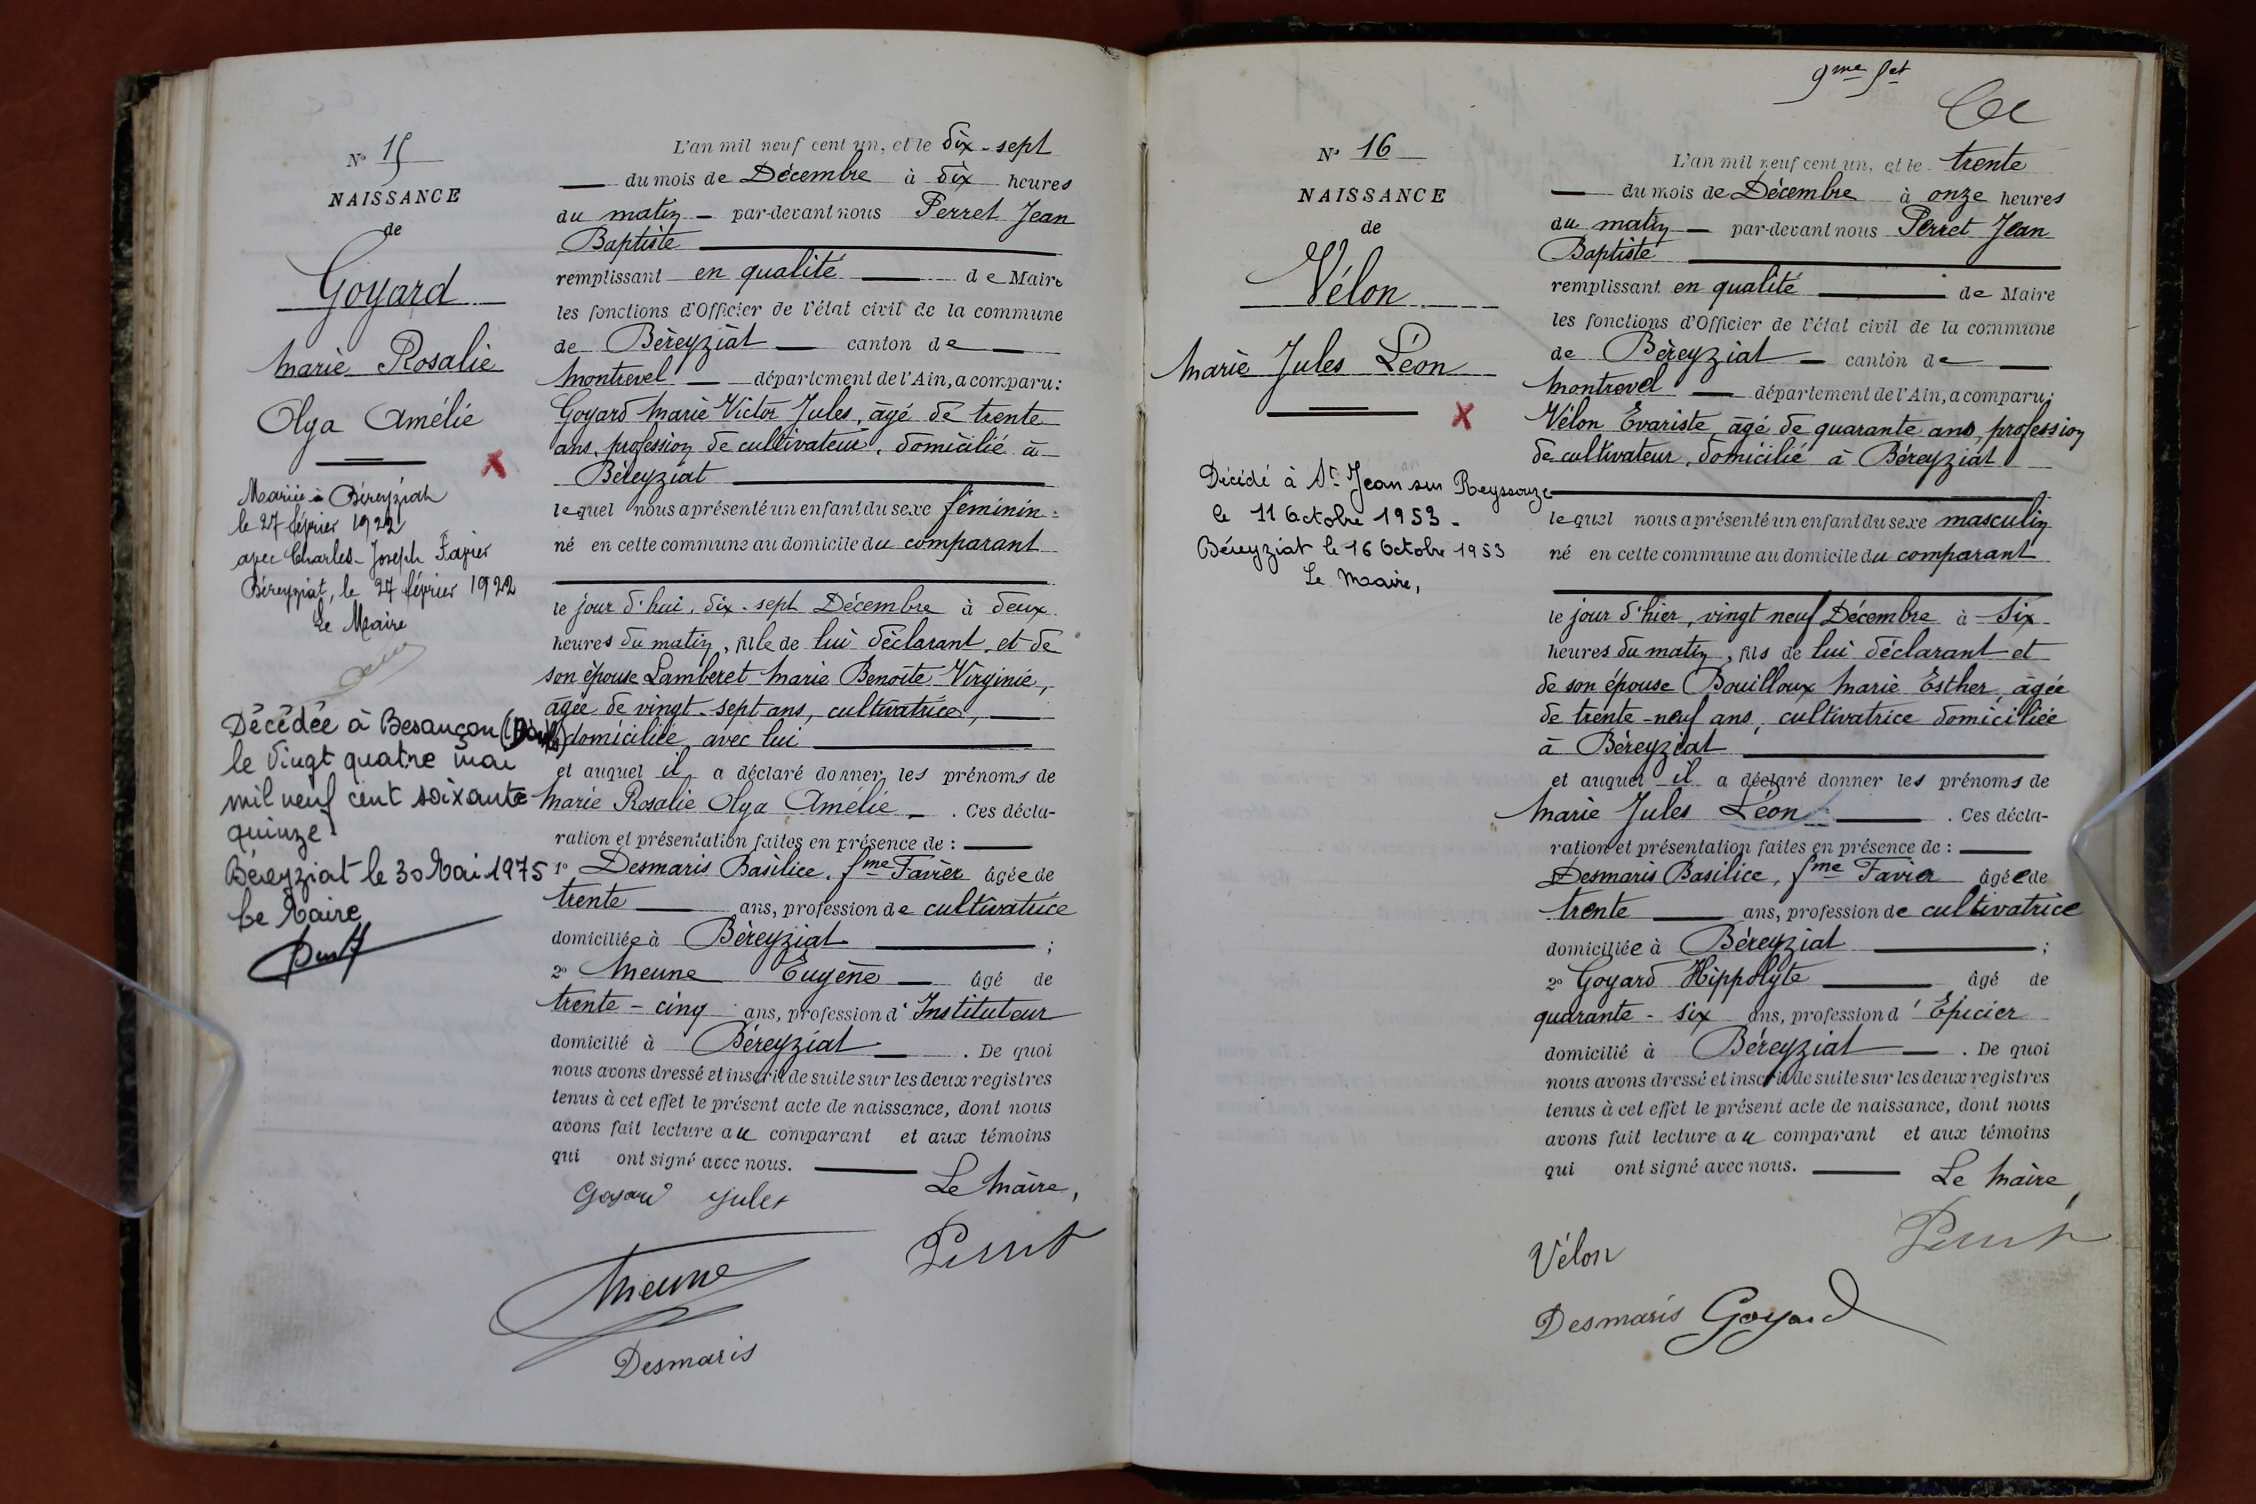 N° 15
NAISSANCE
de
Goyard
Marie Rosalie
Olga Amélie
Mariée à Béreyziat
le 27 février 1922
avec Charles-Joseph Favier
Béreyziat, le 27 février 1922
Le Maire
Décédée à Besançon (Doubs)
le vingt quatre mai
mil neuf cent soixante
quinze
Béreyziat le 30 Mai 1975
Le Maire
L'an mil neuf cent un, et le dix-sept
du mois de Décembre à dix heures
du matin - par-devant nous Perret Jean
Baptiste
remplissant en qualité de Maire
les fonctions d'Officier de l'état civil de la commune
de Béreyziat canton de
Montrevel département de l'Ain, a comparu:
Goyard Marie Victor Jules, âgé de trente
ans, profession de cultivateur, domicilié à
Béreyziat
lequel nous a présenté un enfant du sexe féminin
né en cette commune au domicile du comparant
le jour d'hui, dix-sept Décembre à deux
heures du matin, fille de lui déclarant, et de
son épouse Lamberet Marie Benoîte Virginie,
âgée de vingt-sept ans, cultivatrice,
domiciliée avec lui
et auquel il a déclaré donner les prénoms de
Marie Rosalie Olga Amélie . Ces décla-
ration et présentation faites en présence de :
1° Desmaris Basilice, fme Favier âgée de
trente ans, profession de cultivatrice
domiciliée à Béreyziat ;
2° Meune Eugène âgé de
trente-cinq ans, profession d'Instituteur
domicilié à Béreyziat . De quoi
nous avons dressé et inscrit de suite sur les deux registres
tenus à cet effet le présent acte de naissance, dont nous
avons fait lecture au comparant et aux témoins
qui ont signé avec nous.
Le Maire,
Goyard Jules
Perret
Meune
Desmaris
9me fet
N° 16
NAISSANCE
de
Vélon
Marie Jules Léon
Décédé à St Jean sur Reyssouze
le 11 Octobre 1953 -
Béreyziat le 16 Octobre 1953
Le Maire,
L'an mil neuf cent un, et le trente
du mois de Décembre à onze heures
du matin - par-devant nous Perret Jean
Baptiste
remplissant en qualité de Maire
les fonctions d'Officier de l'état civil de la commune
de Béreyziat - canton de
Montrevel département de l'Ain, a comparu:
Vélon Evariste, âgé de quarante ans, profession
de cultivateur, domicilié à Béreyziat
lequel nous a présenté un enfant du sexe masculin
né en cette commune au domicile du comparant
le jour d'hier, vingt neuf Décembre à six
heures du matin, fils de lui déclarant et
de son épouse Bouilloux Marie Esther, âgée
de trente-neuf ans, cultivatrice domiciliée
à Béreyziat
et auquel il a déclaré donner les prénoms de
Marie Jules Léon . Ces décla-
ration et présentation faites en présence de :
Desmaris Basilice, fme Favier âgée de
trente ans, profession de cultivatrice
domiciliée à Béreyziat ;
2° Goyard Hippolyte âgé de
quarante-six ans, profession d'Épicier
domicilié à Béreyziat . De quoi
nous avons dressé et inscrit de suite sur les deux registres
tenus à cet effet le présent acte de naissance, dont nous
avons fait lecture au comparant et aux témoins
qui ont signé avec nous.
Le Maire,
Perret
Vélon
Desmaris Goyard